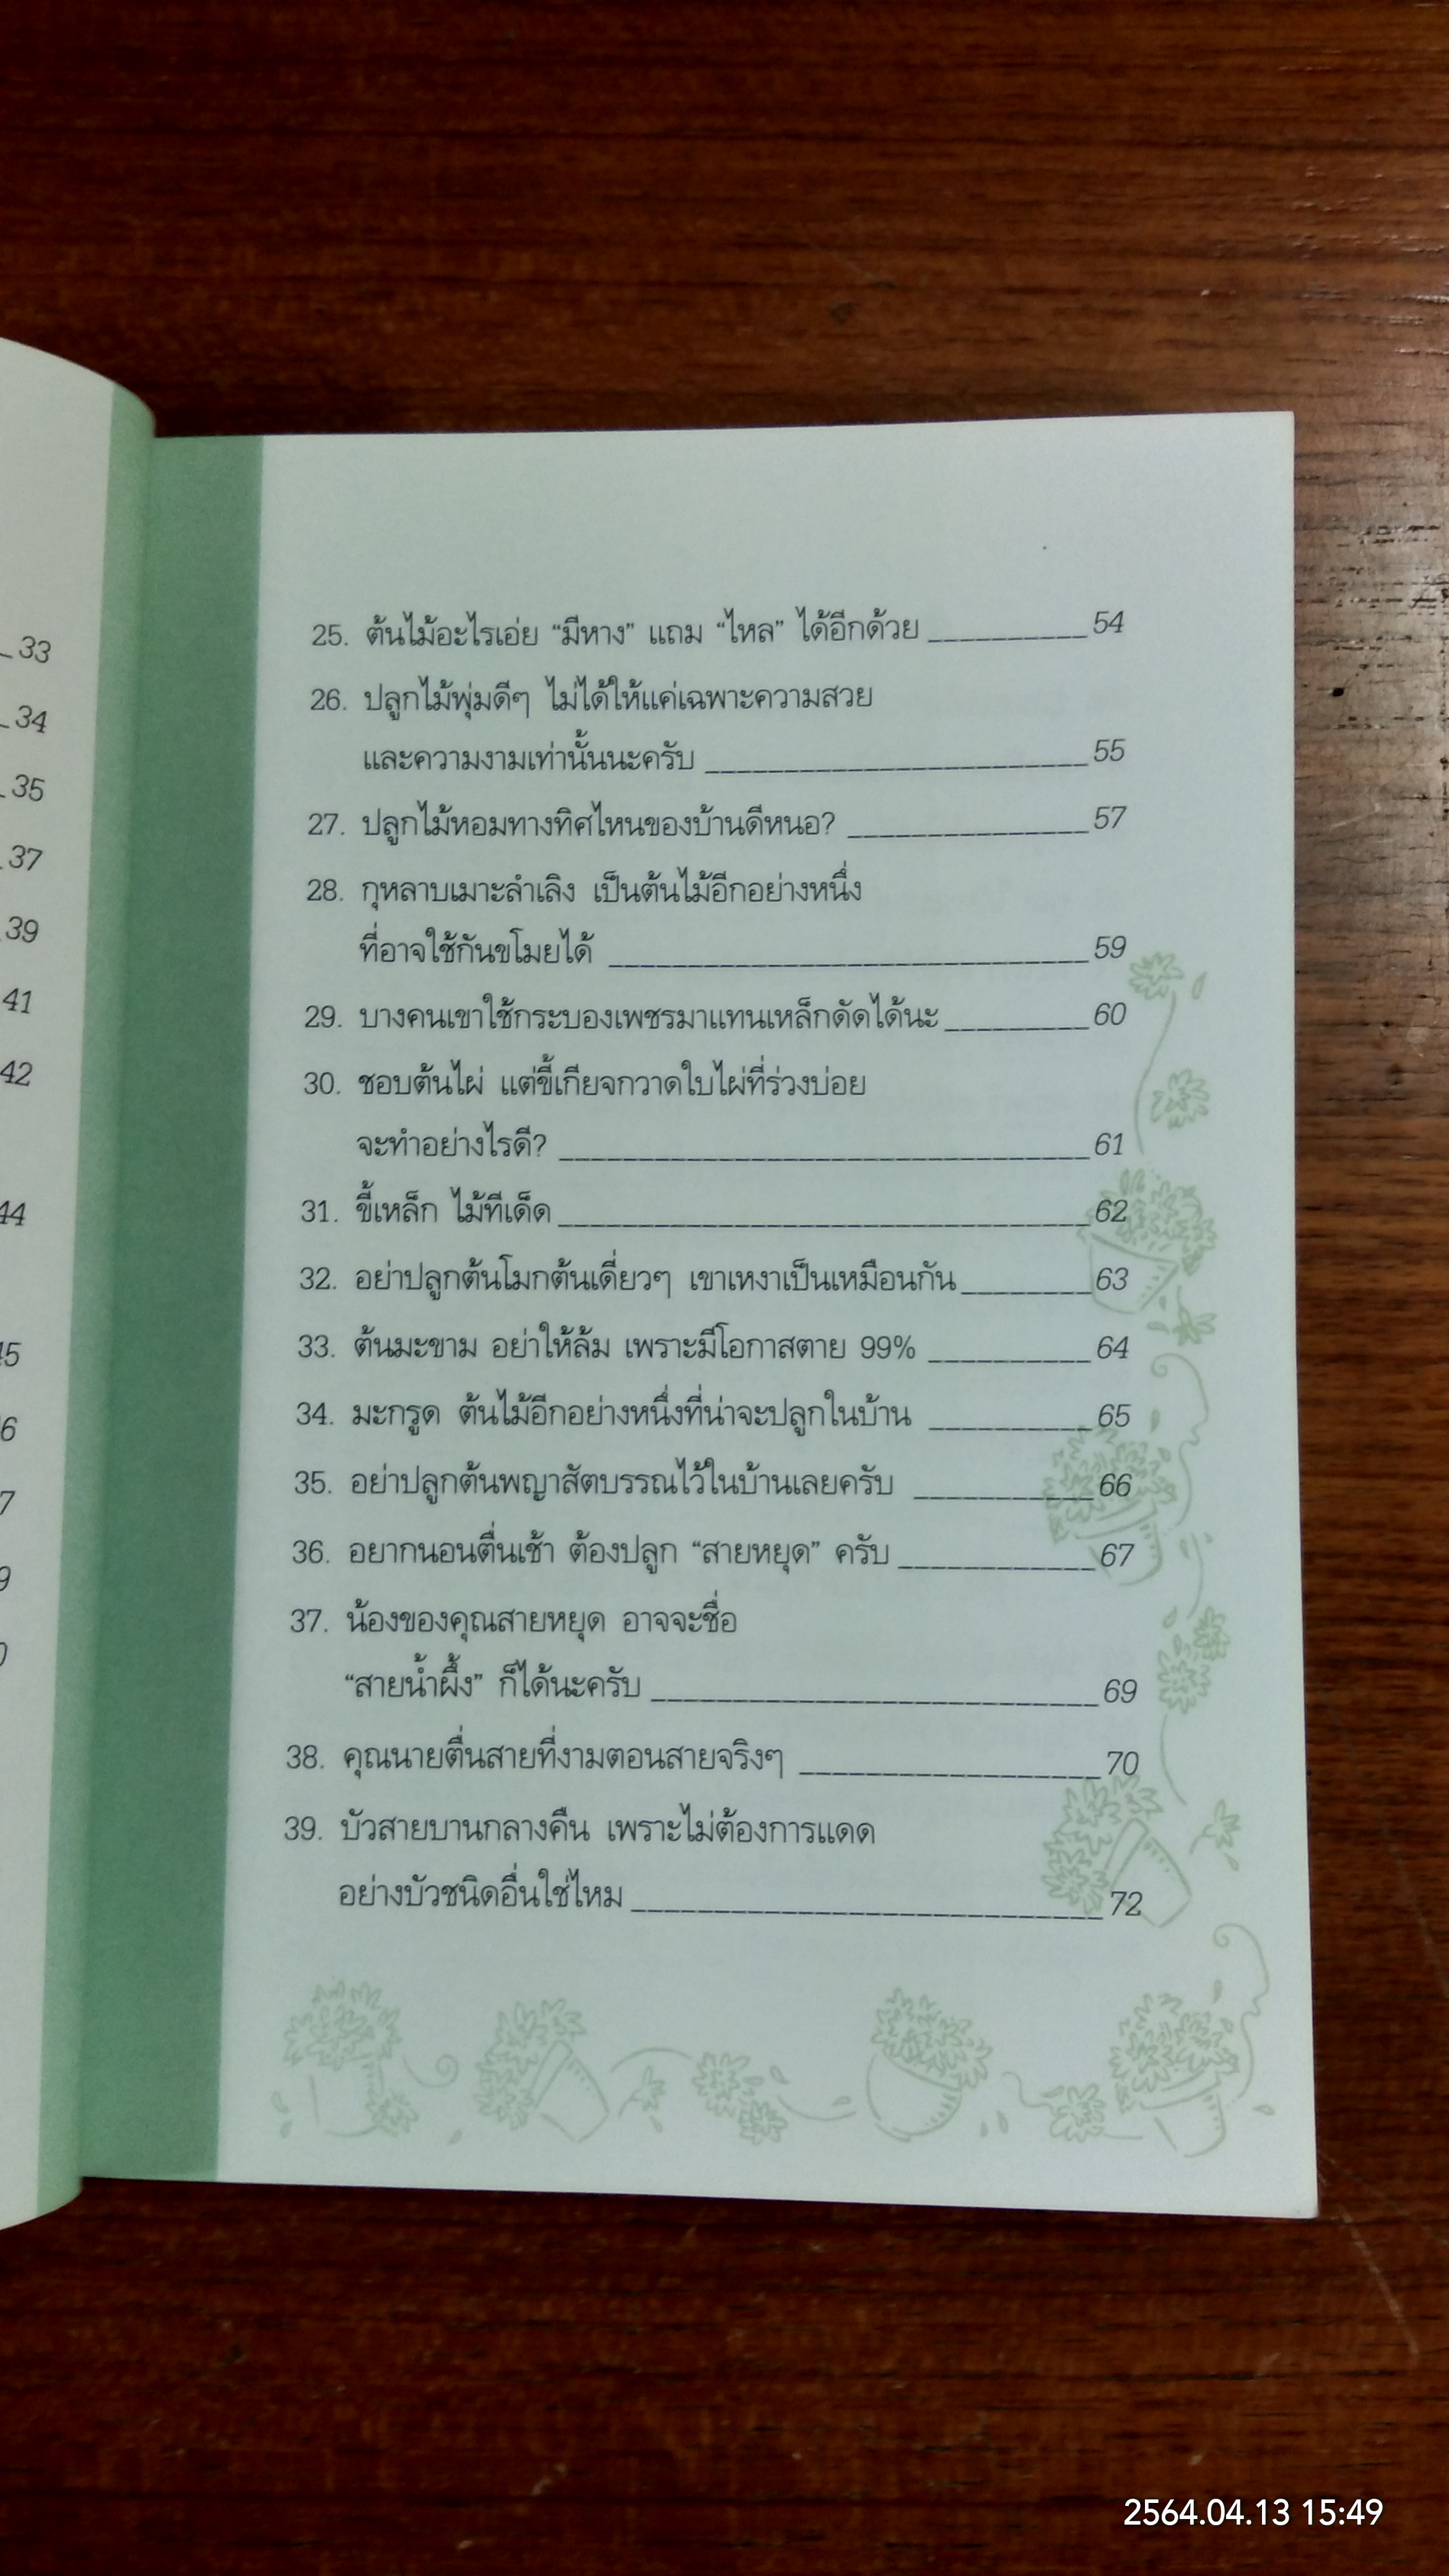 33
34
35
37
39
41
42
44
45
6
7
9
25. ต้นไม้อะไรเอ่ย “มีหาง” แถม “ไหล” ได้อีกด้วย __________ 54
26. ปลูกไม้พุ่มดีๆ ไม่ได้ให้แค่เฉพาะความสวย
และความงามเท่านั้นนะครับ __________ 55
27. ปลูกไม้หอมทางทิศไหนของบ้านดีหนอ? __________ 57
28. กุหลาบเมาะลำเลิง เป็นต้นไม้อีกอย่างหนึ่ง
ที่อาจใช้กันขโมยได้ __________ 59
29. บางคนเขาใช้กระบองเพชรมาแทนเหล็กดัดได้นะ __________ 60
30. ชอบต้นไผ่ แต่ขี้เกียจกวาดใบไผ่ที่ร่วงบ่อย
จะทำอย่างไรดี? __________ 61
31. ขี้เหล็ก ไม้ทีเด็ด __________ 62
32. อย่าปลูกต้นโมกต้นเดี่ยวๆ เขาเหงาเป็นเหมือนกัน __________ 63
33. ต้นมะขาม อย่าให้ล้ม เพราะมีโอกาสตาย 99% __________ 64
34. มะกรูด ต้นไม้อีกอย่างหนึ่งที่น่าจะปลูกในบ้าน __________ 65
35. อย่าปลูกต้นพญาสัตบรรณไว้ในบ้านเลยครับ __________ 66
36. อยากนอนตื่นเช้า ต้องปลูก “สายหยุด” ครับ __________ 67
37. น้องของคุณสายหยุด อาจจะชื่อ
“สายน้ำผึ้ง” ก็ได้นะครับ __________ 69
38. คุณนายตื่นสายที่งามตอนสายจริงๆ __________ 70
39. บัวสายบานกลางคืน เพราะไม่ต้องการแดด
อย่างบัวชนิดอื่นใช่ไหม __________ 72
2564.04.13 15:49